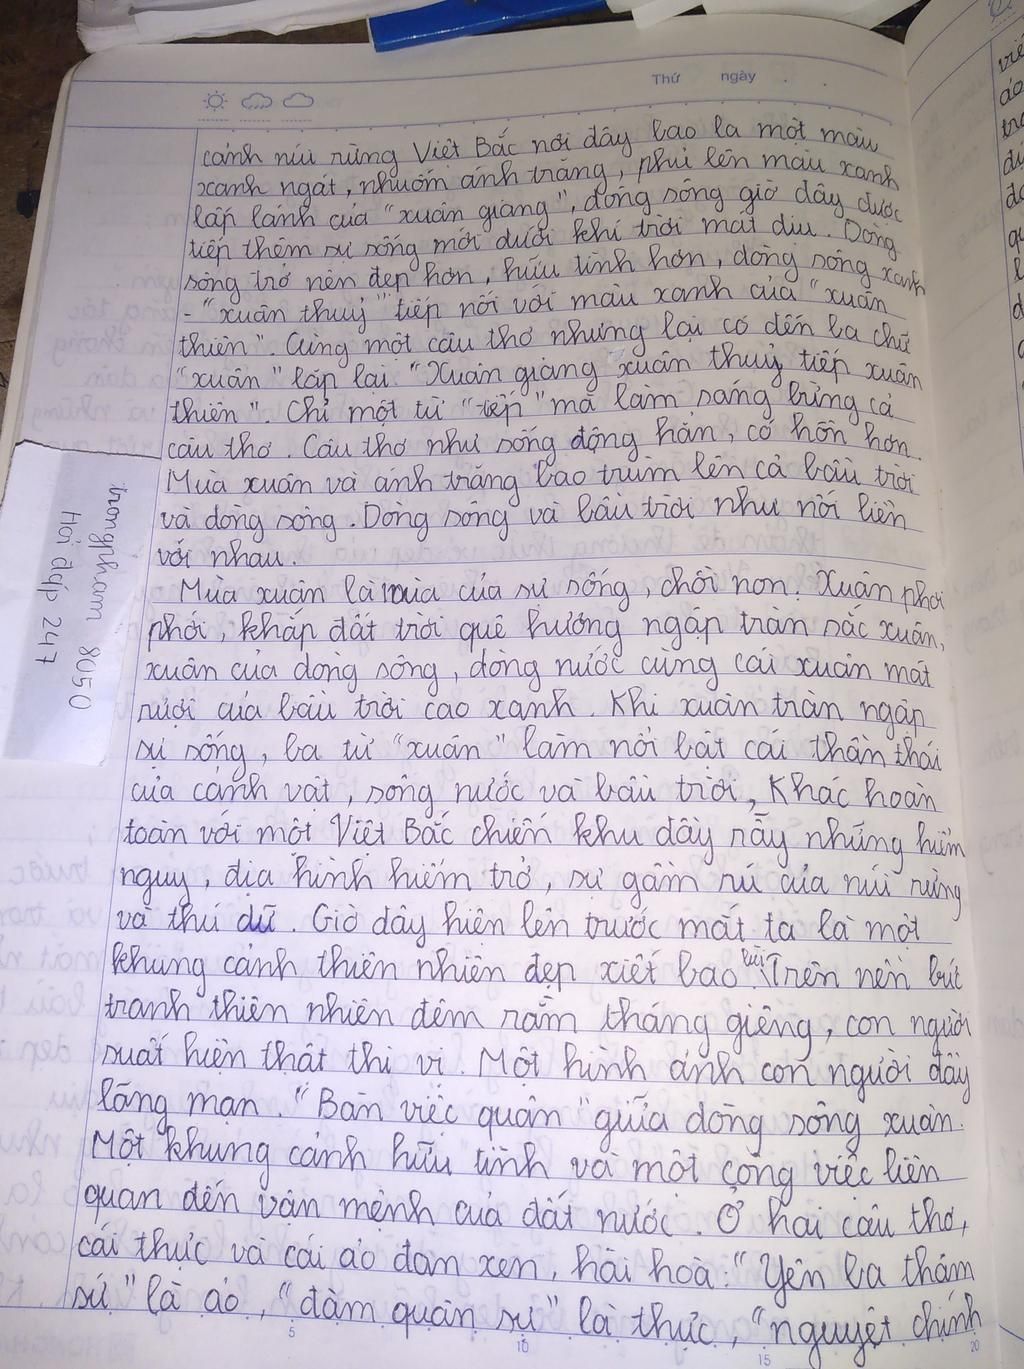 Thứ ngày
cảnh núi rừng Việt Bắc nơi đây bao la một màu
xanh ngát, nhuốm ánh trăng, phủ lên màu xanh
lấp lánh của "xuân giang", dòng sông giờ đây được
tiếp thêm sự sống mới dưới khí trời mát dịu. Dòng
sông trở nên đẹp hơn, hữu tình hơn, dòng sông xanh
- "xuân thuỷ" tiếp nối với màu xanh của "xuân
thiên". Cùng một câu thơ nhưng lại có đến ba chữ
"xuân" lặp lại "Xuân giang xuân thuỷ tiếp xuân
thiên". Chỉ một từ "tiếp" mà làm sáng bừng cả
câu thơ. Câu thơ như sống động hẳn, có hồn hơn.
Mùa xuân và ánh trăng bao trùm lên cả bầu trời
và dòng sông. Dòng sông và bầu trời như nối liền
với nhau.
Mùa xuân là mùa của sự sống, chồi non. Xuân phơi
phới, khắp đất trời quê hương ngập tràn sắc xuân,
xuân của dòng sông, dòng nước cùng cái xuân mát
rượi của bầu trời cao xanh. Khi xuân tràn ngập
sự sống, ba từ "xuân" làm nổi bật cái thần thái
của cảnh vật, sông nước và bầu trời, Khác hoàn
toàn với một Việt Bắc chiến khu đầy rẫy những hiểm
nguy, địa hình hiểm trở, sự gầm rú của núi rừng
và thú dữ. Giờ đây hiện lên trước mắt ta là một
khung cảnh thiên nhiên đẹp xiết bao. Trên nền bức
tranh thiên nhiên đêm rằm tháng giêng, con người
suất hiện thật thi vị. Một hình ảnh con người đầy
lãng mạn. "Bàn việc quân" giữa dòng sông xuân.
Một khung cảnh hữu tình và một công việc liên
quan đến vận mệnh của đất nước. Ở hai câu thơ,
cái thực và cái ảo đan xen, hài hoà: "Yên ba thâm
sứ" là ảo, "đàm quân sự" là thực, "nguyệt chính
5 10 15 20
trongpham 8050
Hỏi đáp 247